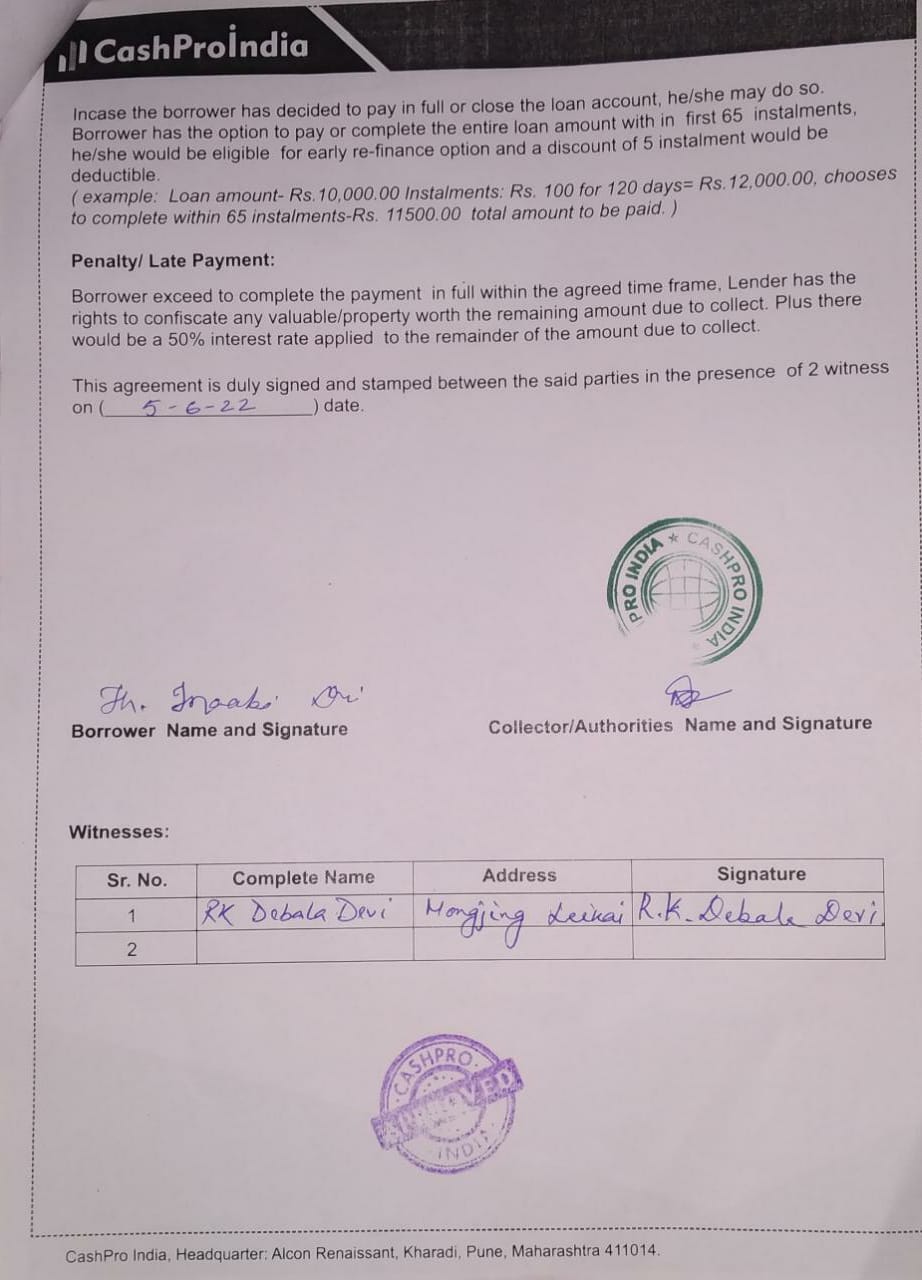 CashProIndia
Incase the borrower has decided to pay in full or close the loan account, he/she may do so.
Borrower has the option to pay or complete the entire loan amount with in first 65 instalments,
he/she would be eligible for early re-finance option and a discount of 5 instalment would be
deductible.
( example: Loan amount- Rs.10,000.00 Instalments: Rs. 100 for 120 days= Rs.12,000.00, chooses
to complete within 65 instalments-Rs. 11500.00 total amount to be paid. )
Penalty/ Late Payment:
Borrower exceed to complete the payment in full within the agreed time frame, Lender has the
rights to confiscate any valuable/property worth the remaining amount due to collect. Plus there
would be a 50% interest rate applied to the remainder of the amount due to collect.
This agreement is duly signed and stamped between the said parties in the presence of 2 witness
on ( 5-6-22 ) date.
PRO INDIA ★ CASHPRO INDIA
Th.
Borrower Name and Signature
Collector/Authorities Name and Signature
Witnesses:
Sr. No. Complete Name Address Signature
1 RK Debala Devi Mongjing Leikai R.K. Debala Devi
2
CASHPRO
APPROVED
INDIA
CashPro India, Headquarter: Alcon Renaissant, Kharadi, Pune, Maharashtra 411014.